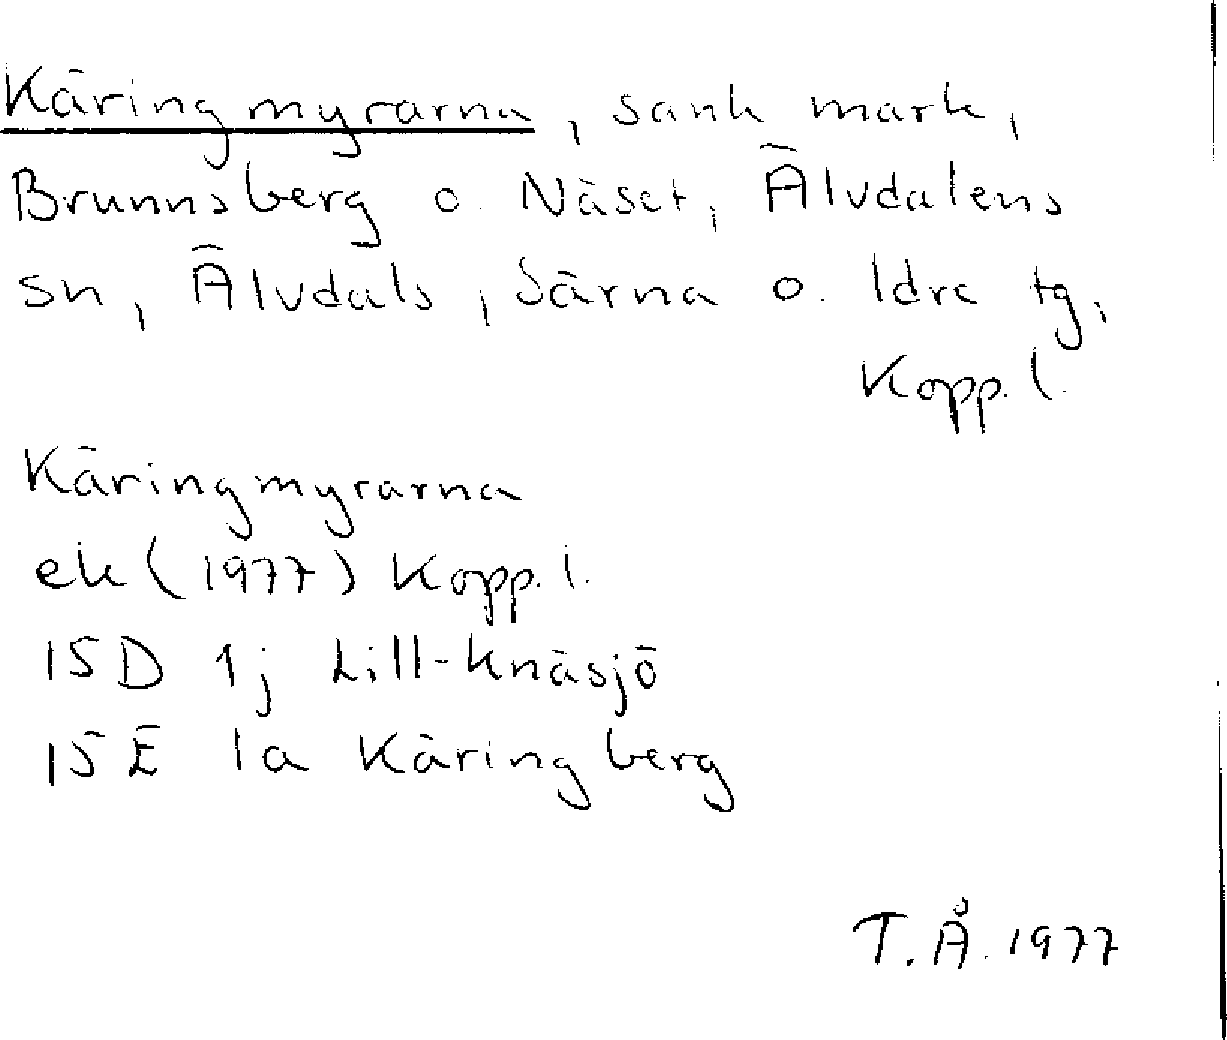 Käringmyrarna, sank mark,
Brunnsberg o. Näset, Älvdalens
sn, Älvdals, Särna o. Idre tg,
Kopp. l.
Käringmyrarna
ek (1977) Kopp. l.
15D 1j Lill-Knäsjö
15E 1a Käringberg
T.Å. 1977